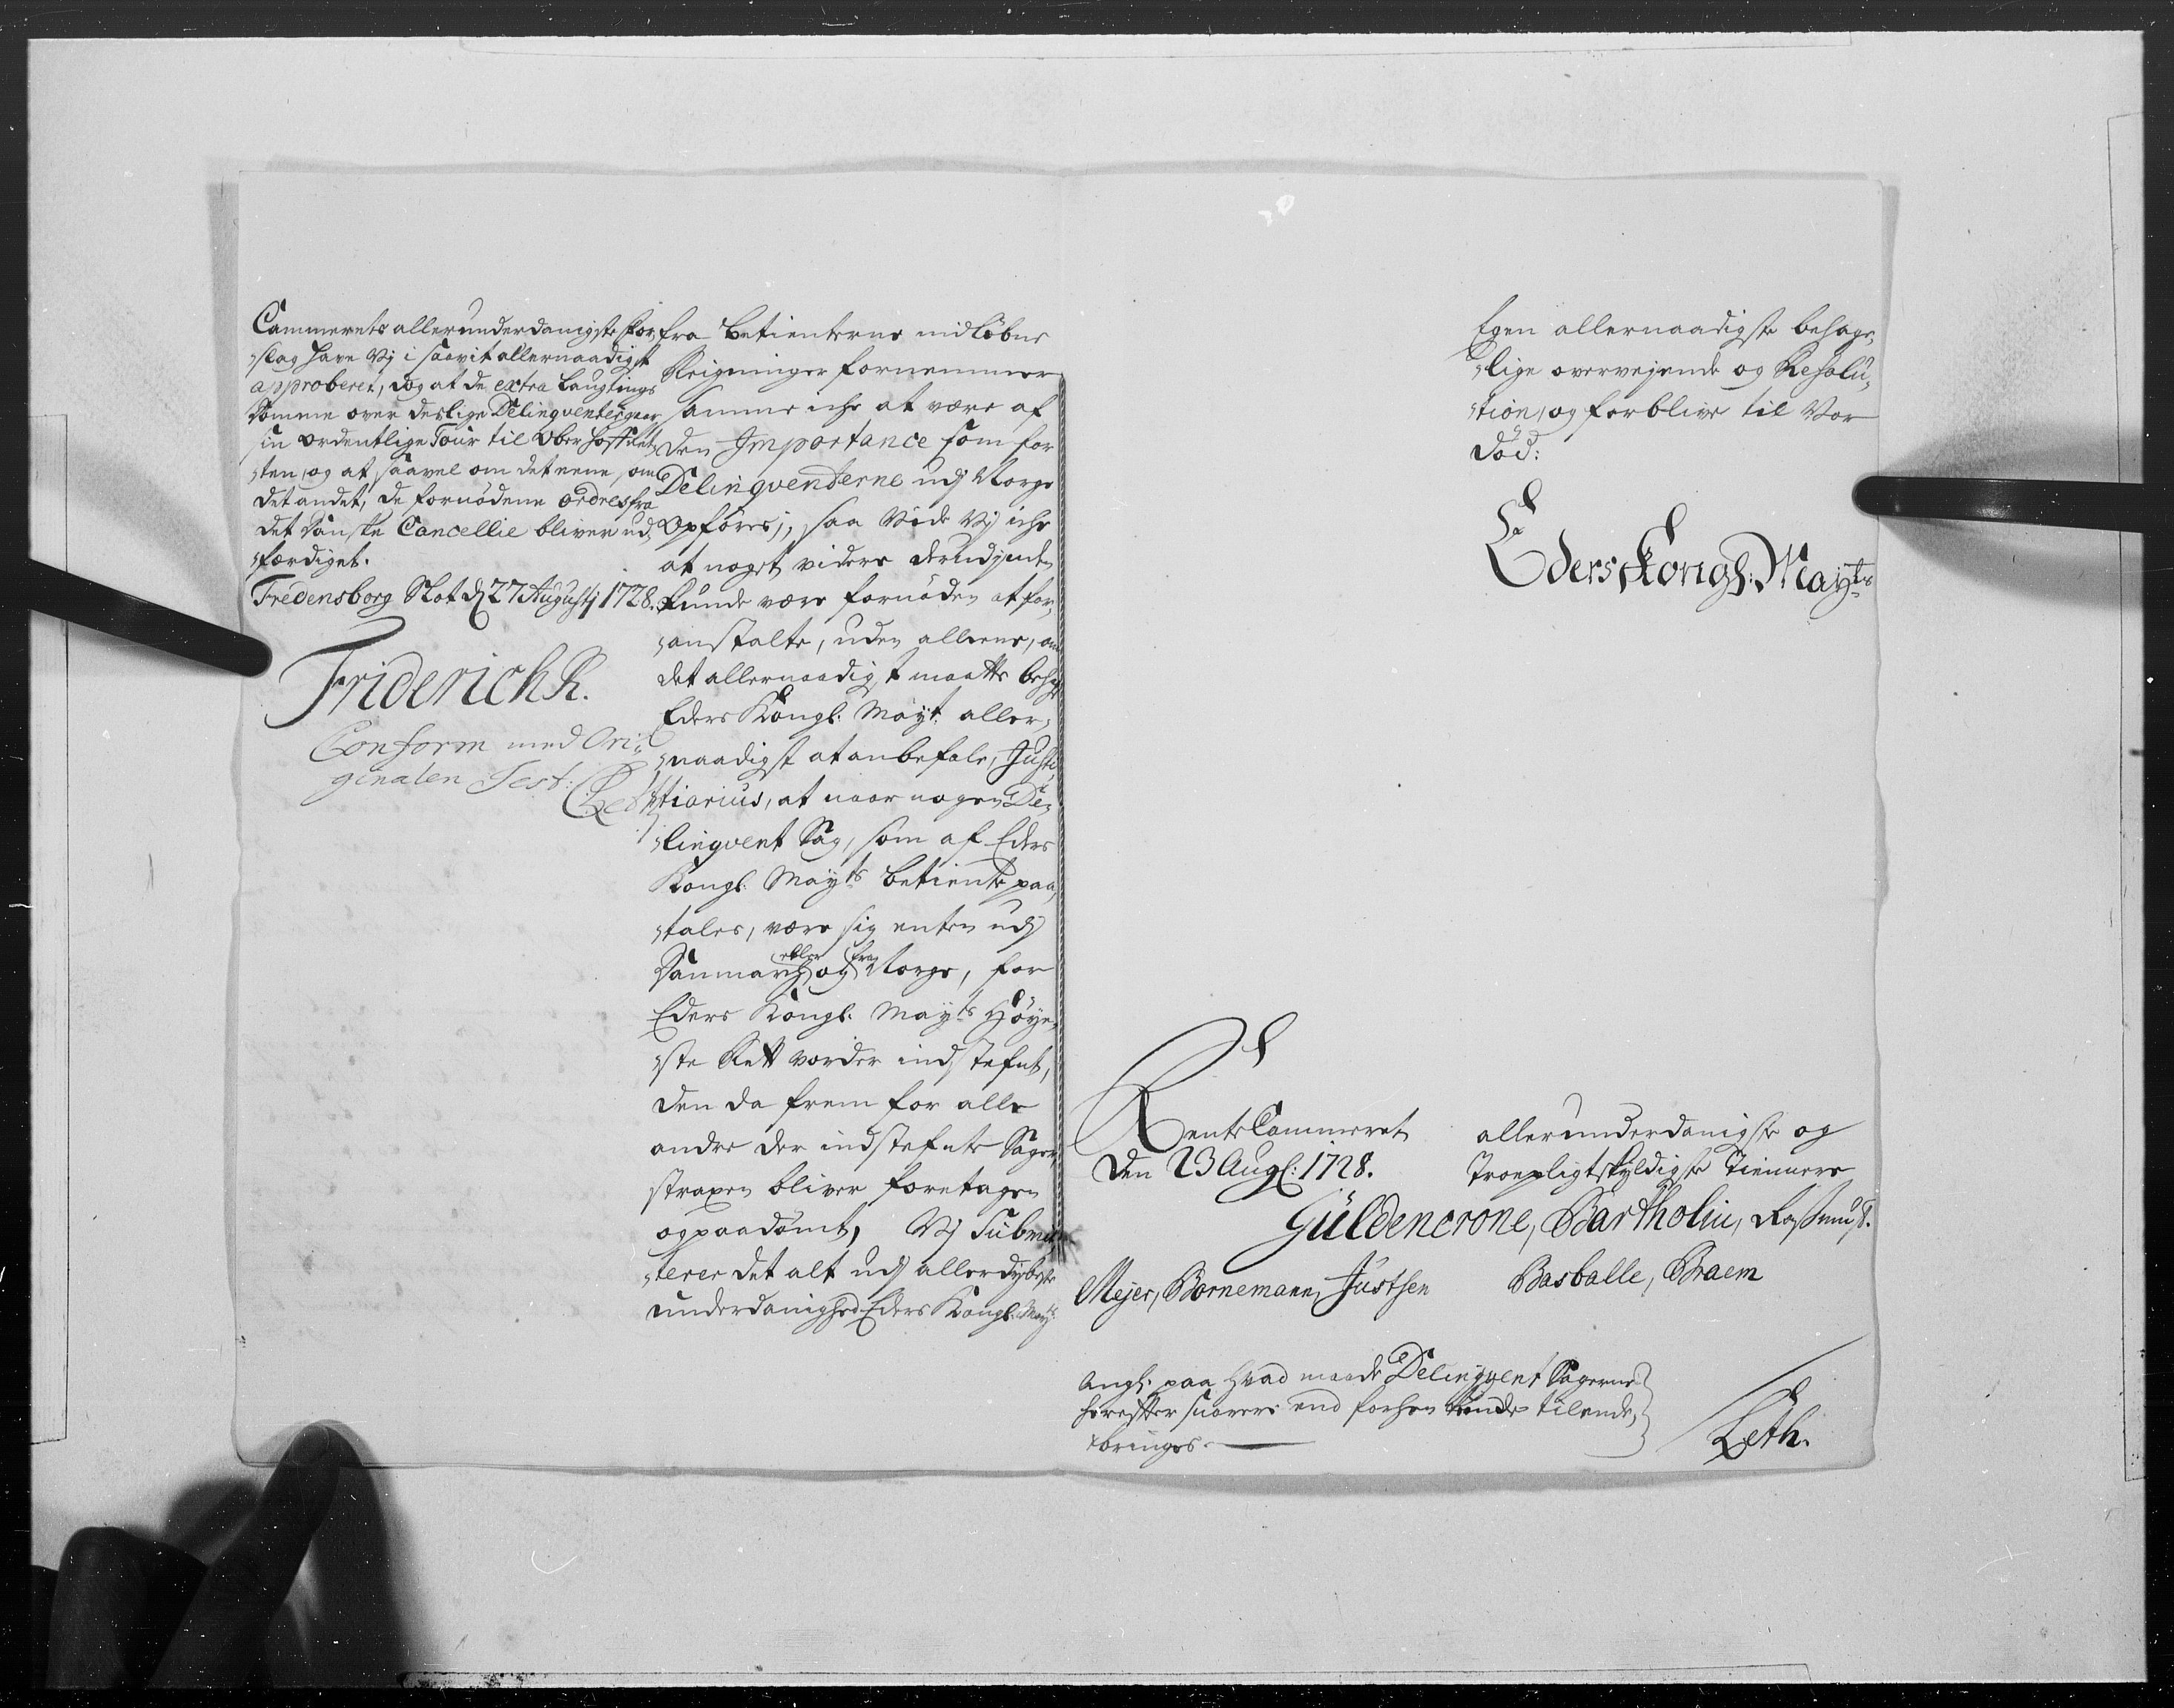 Cammerets allerunderdanigste For,
,slag have Vj i saavit allernaadigst
approberet, dog at de extra Laugtings
Domme over deslige Delinqventer gaar
sin ordentlige Tour til Ober Hoffret,
,ten, og at saavel om det eene, som
det andet, de fornødene ordres fra
det Danske Cancellie bliver ud,
,færdiget.
Fredensborg Slot d 27 Augustj 1728.
Friderich R.
Conform med Ori,
ginalen Test:
Leth
fra betienterne indløbne
Reigninger fornemmer
samme iche at være af
den Importance som for
Delinqventerne udj Norge
opføres;, saa Viide Vj iche
at noget videre derudjnden
kunde være fornøden at for,
,anstalte, uden alleene, om
det allernaadigst maatte behage
Eders Kongl: Mayt: aller,
,naadigst at anbefale, Justi,
,tiarius, at naar nogen De,
,linqvent Sag, som af Eders
Kongl: Mayts betiente paa,
,tales, være sig enten udj
Danmarch eller og fra Norge, for
Eders Kongl: Mayts Høye,
,ste Rett vorder indstefnt,
den da frem for alle
andre der indstefnte Sager,
straxen bliver foretagen
og paadømt, Vj Submit,
,terer det alt udj allerdybeste
underdanighed Eders Kongl: Mayts
Egen allernaadigste behage,
,lige overvejende og Resolu,
,tion, og forblive til Vor
død:
Eders Kongl: Mayts
RenteCammeret
den 23 Augl: 1728.
allerunderdanigste og
Troepligtskyldigste Tiennere
Güldencrone, Bartholin, Rasmus.
Mejer, Bornemann, Justsen Basballe, Braem
Angl: paa hvad maade Delinqvent Sagerne
herefter snarere end forhen kunde tilende,
,bringes.
Leth.